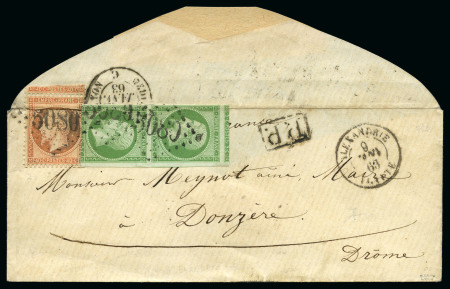 5080
5080
P.P.
ALEXANDRIE
EGYPTE
France
Monsieur Meynot ainé, Maire
à Donzère
Drôme